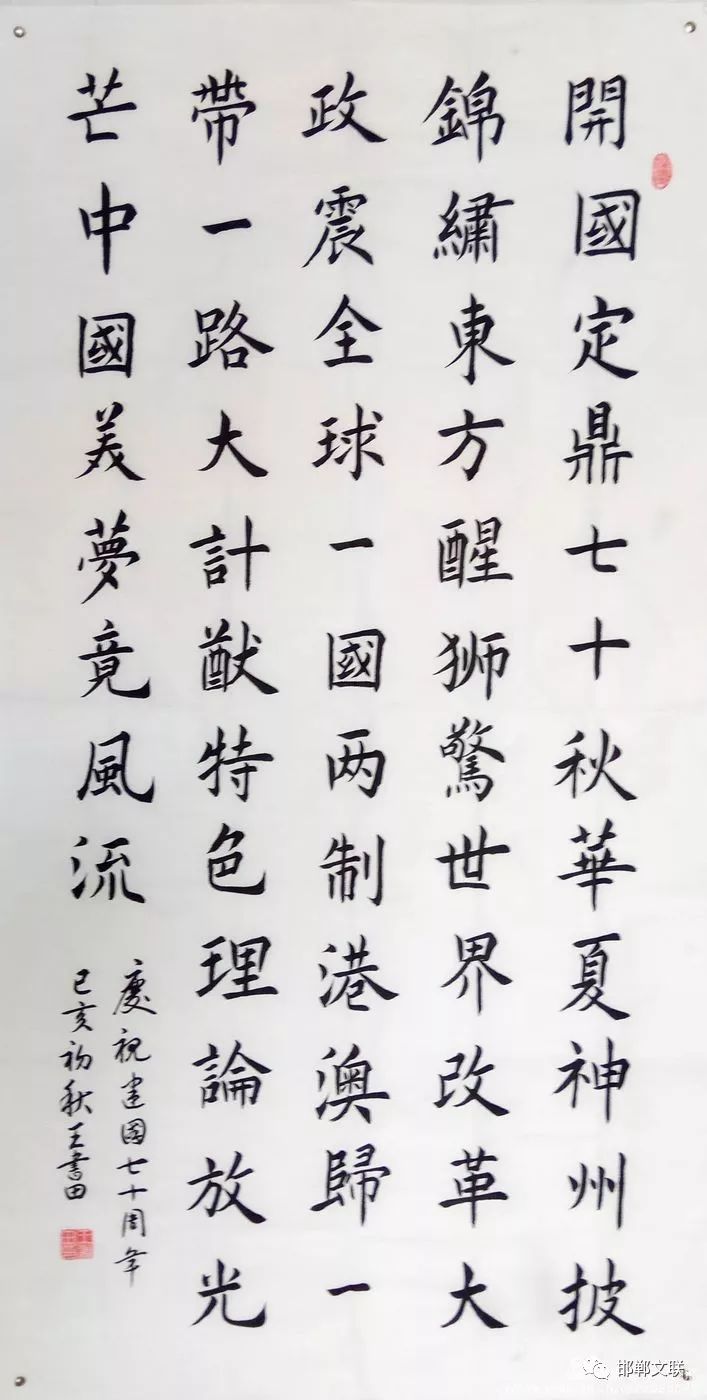 開國定鼎七十秋華夏神州披
錦繡東方醒狮驚世界改革大
政震全球一國两制港澳歸一
帶一路大計猷特色理論放光
芒中國美夢竟風流
慶祝建國七十周年
己亥初秋王書田
邯郸文联